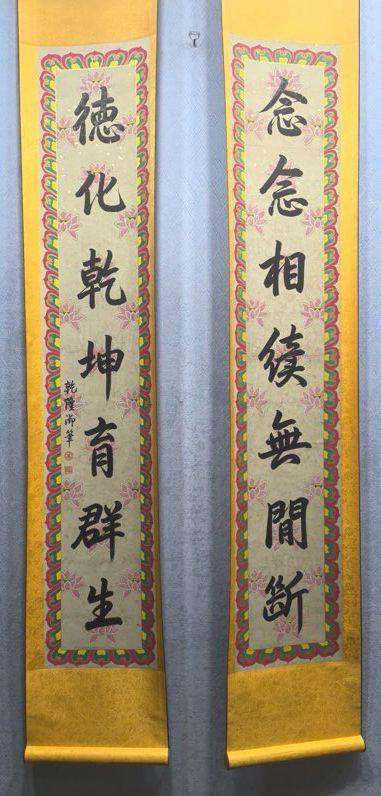 念念相續無間斷
德化乾坤育群生
乾隆御筆